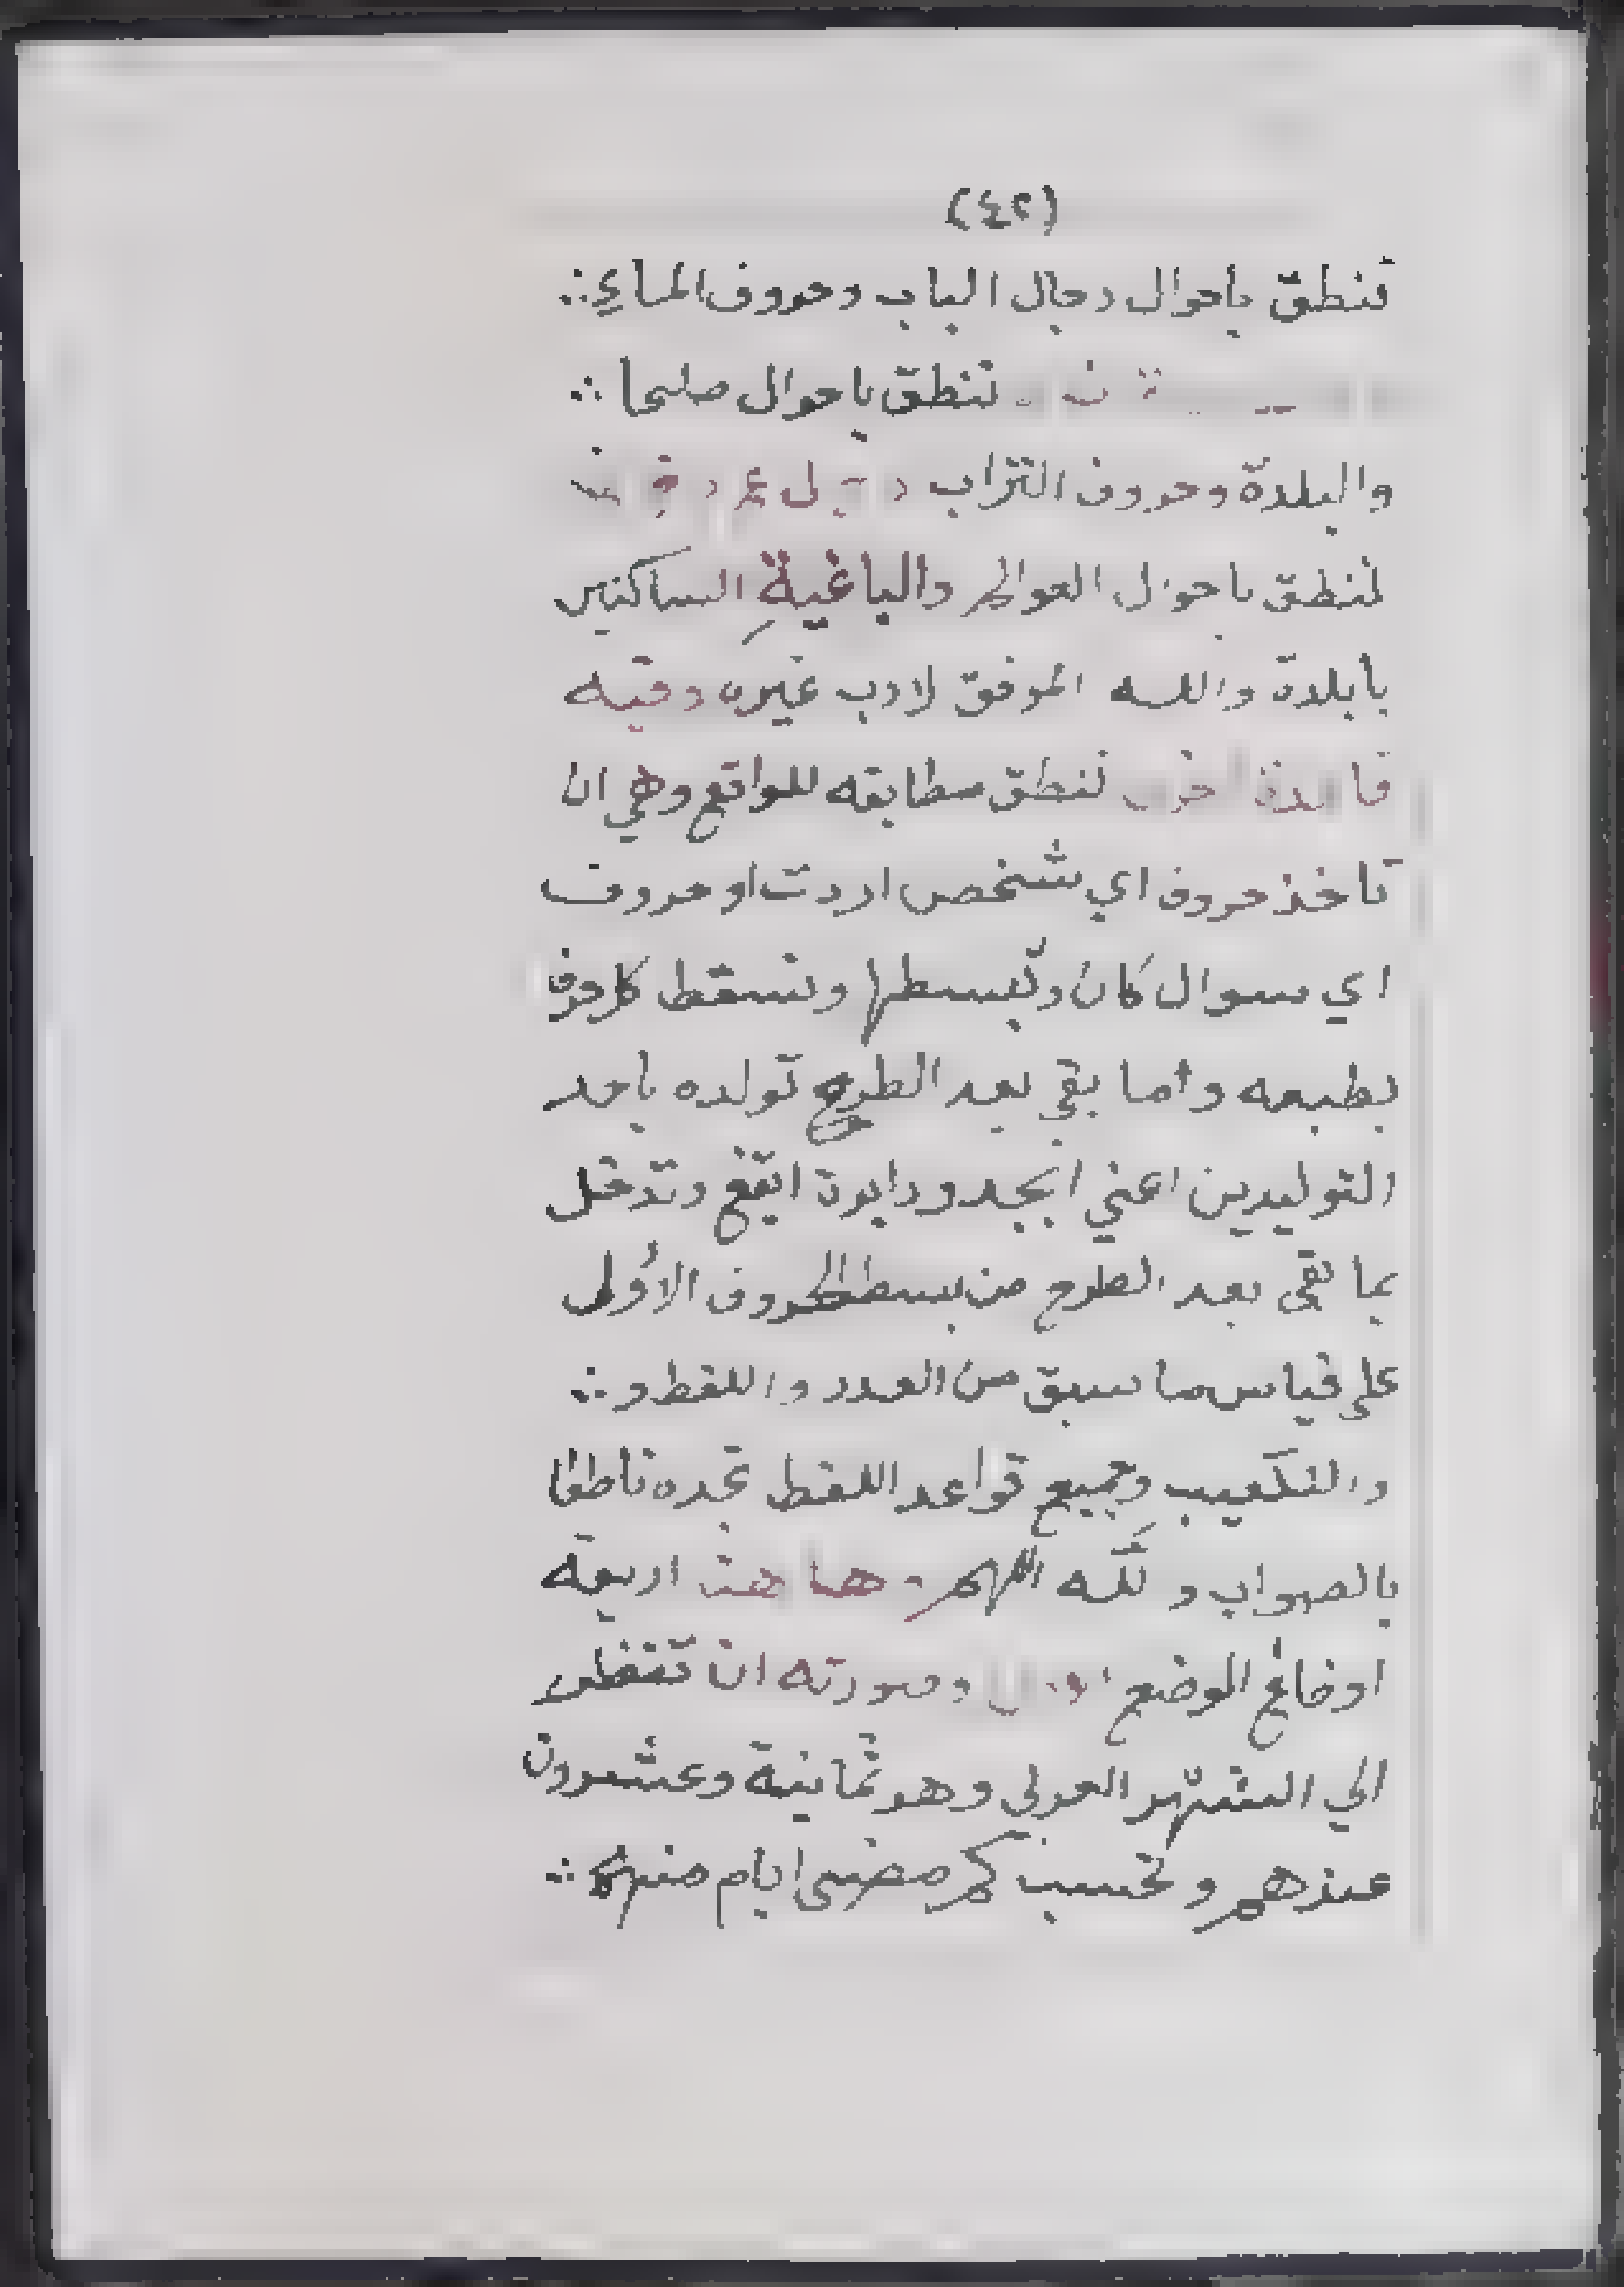 (٤٢)
تنطق باحوال رجال الباب وحروف الماء ∴
تنطق باحوال صلحا ∴
والبلدة وحروف التراب
تنطق باحوال العوالم والباغية الساكنين
بابلدة والله الموفق لارب غيره وفيه
قاعدة اخرى تنطق مطابقه للواقع وهي ان
تاخذ حروف اي شخص اردت او حروف
اي سوال كان وتبسطها وتسقط كل حرف
بطبعه وما بقي بعد الطرح تولده باحد
التوليدين اعني ابجد ودايرة ايقغ وتدخل
بما بقي بعد الطرح من بسط الحروف الاول
على قياس ما سبق من العدد واللقط و ∴
والتكعيب وجميع قواعد اللقط تجده ناطقا
بالصواب و اربعة
اوضاع الوضع الاول وصورته ان تنظر
الي الشهر العربي وهو ثمانية وعشرون
عندهم وتحسب كم مضى ايام منهم ∴